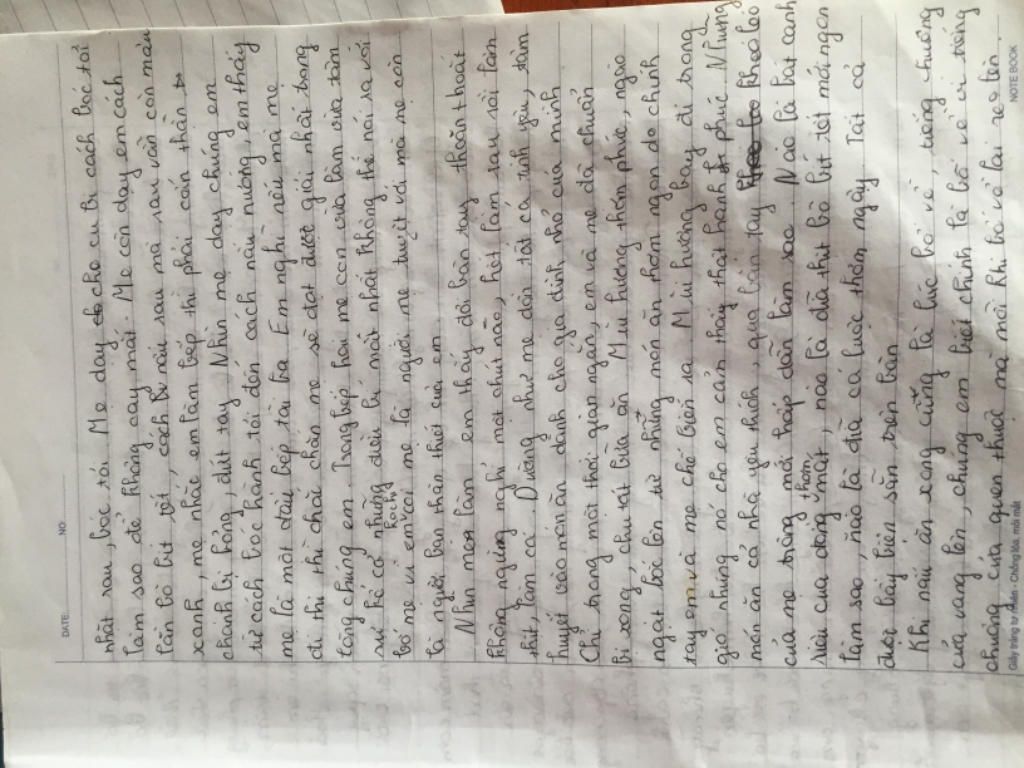 DATE: NO:
nhặt rau, bóc tỏi. Mẹ dạy cho cu Bi cách bóc tỏi
làm sao để không cay mắt. Mẹ còn dạy em cách
tẩm bò bít tết, cách nấu rau mà rau vẫn còn màu
xanh, mẹ nhắc em làm bếp thì phải cẩn thận
chánh bị bỏng, đứt tay. Nhìn mẹ dạy chúng em
từ cách bóc hành tỏi đến cách nấu nướng, em thấy
mẹ là một đầu bếp tài ba. Em nghĩ nếu mà mẹ
đi thi thì chắc chắn mẹ sẽ đạt được giải nhất trong
lòng chúng em. Trong bếp hai mẹ con vừa làm vừa tâm
sự kể cả những điều bí mật nhất không thể nói ra với
bố mẹ vì em coi mẹ là người mẹ tuyệt vời mà mẹ còn
kochi
là người bạn thân thiết của em.
Nhìn mẹ làm em thấy đôi bàn tay thoăn thoắt
không ngừng nghỉ một chút nào, hết làm rau rồi làm
thịt, làm cá. Dường như mẹ dồn tất cả tình yêu, tâm
huyết vào món ăn dành cho gia đình nhỏ của mình
Chỉ trong một thời gian ngắn, em và mẹ đã chuẩn
bị xong, chu tất bữa ăn. Mùi hương thơm phức, ngào
ngạt bốc lên từ những món ăn thơm ngon do chính
tay em và mẹ chế biến ra. Mùi hương bay đi trong
gió nhưng nó cho em cảm thấy thật hạnh phúc. Những
món ăn cả nhà yêu thích, qua bàn tay khéo léo
của mẹ trông mới hấp dẫn làm sao. Nào là bát canh
riêu cua đồng thơm mát, nào là đĩa thịt bò bít tết mới ngon
làm sao, nào là đĩa cá luộc thơm ngậy. Tất cả
được bày biện sẵn trên bàn.
Khi nấu ăn xong cũng là lúc bố về, tiếng chuông
cửa vang lên, chúng em biết chính là bố về vì tiếng
chuông cửa quen thuộc mà mỗi khi bố về lại reo lên.
Giấy trắng tự nhiên - Chống lóa, mỏi mắt NOTE BOOK